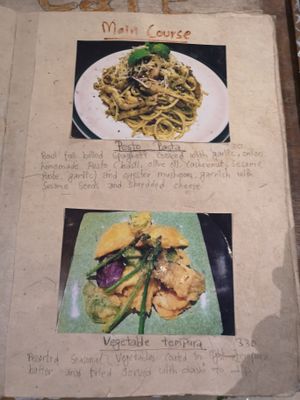 Main Course
Pesto Pasta
Bowl full boiled Spaghetti tossed with garlic, onion,
homemade Pesto (basil, olive oil, cashewnut, sesame
garlic) and oyster mushroom, garnish with
Sesame Seeds and shredded cheese
Vegetable tempura 330
Assorted seasonal Vegetables coated in tempura
batter and fried served with dashi to